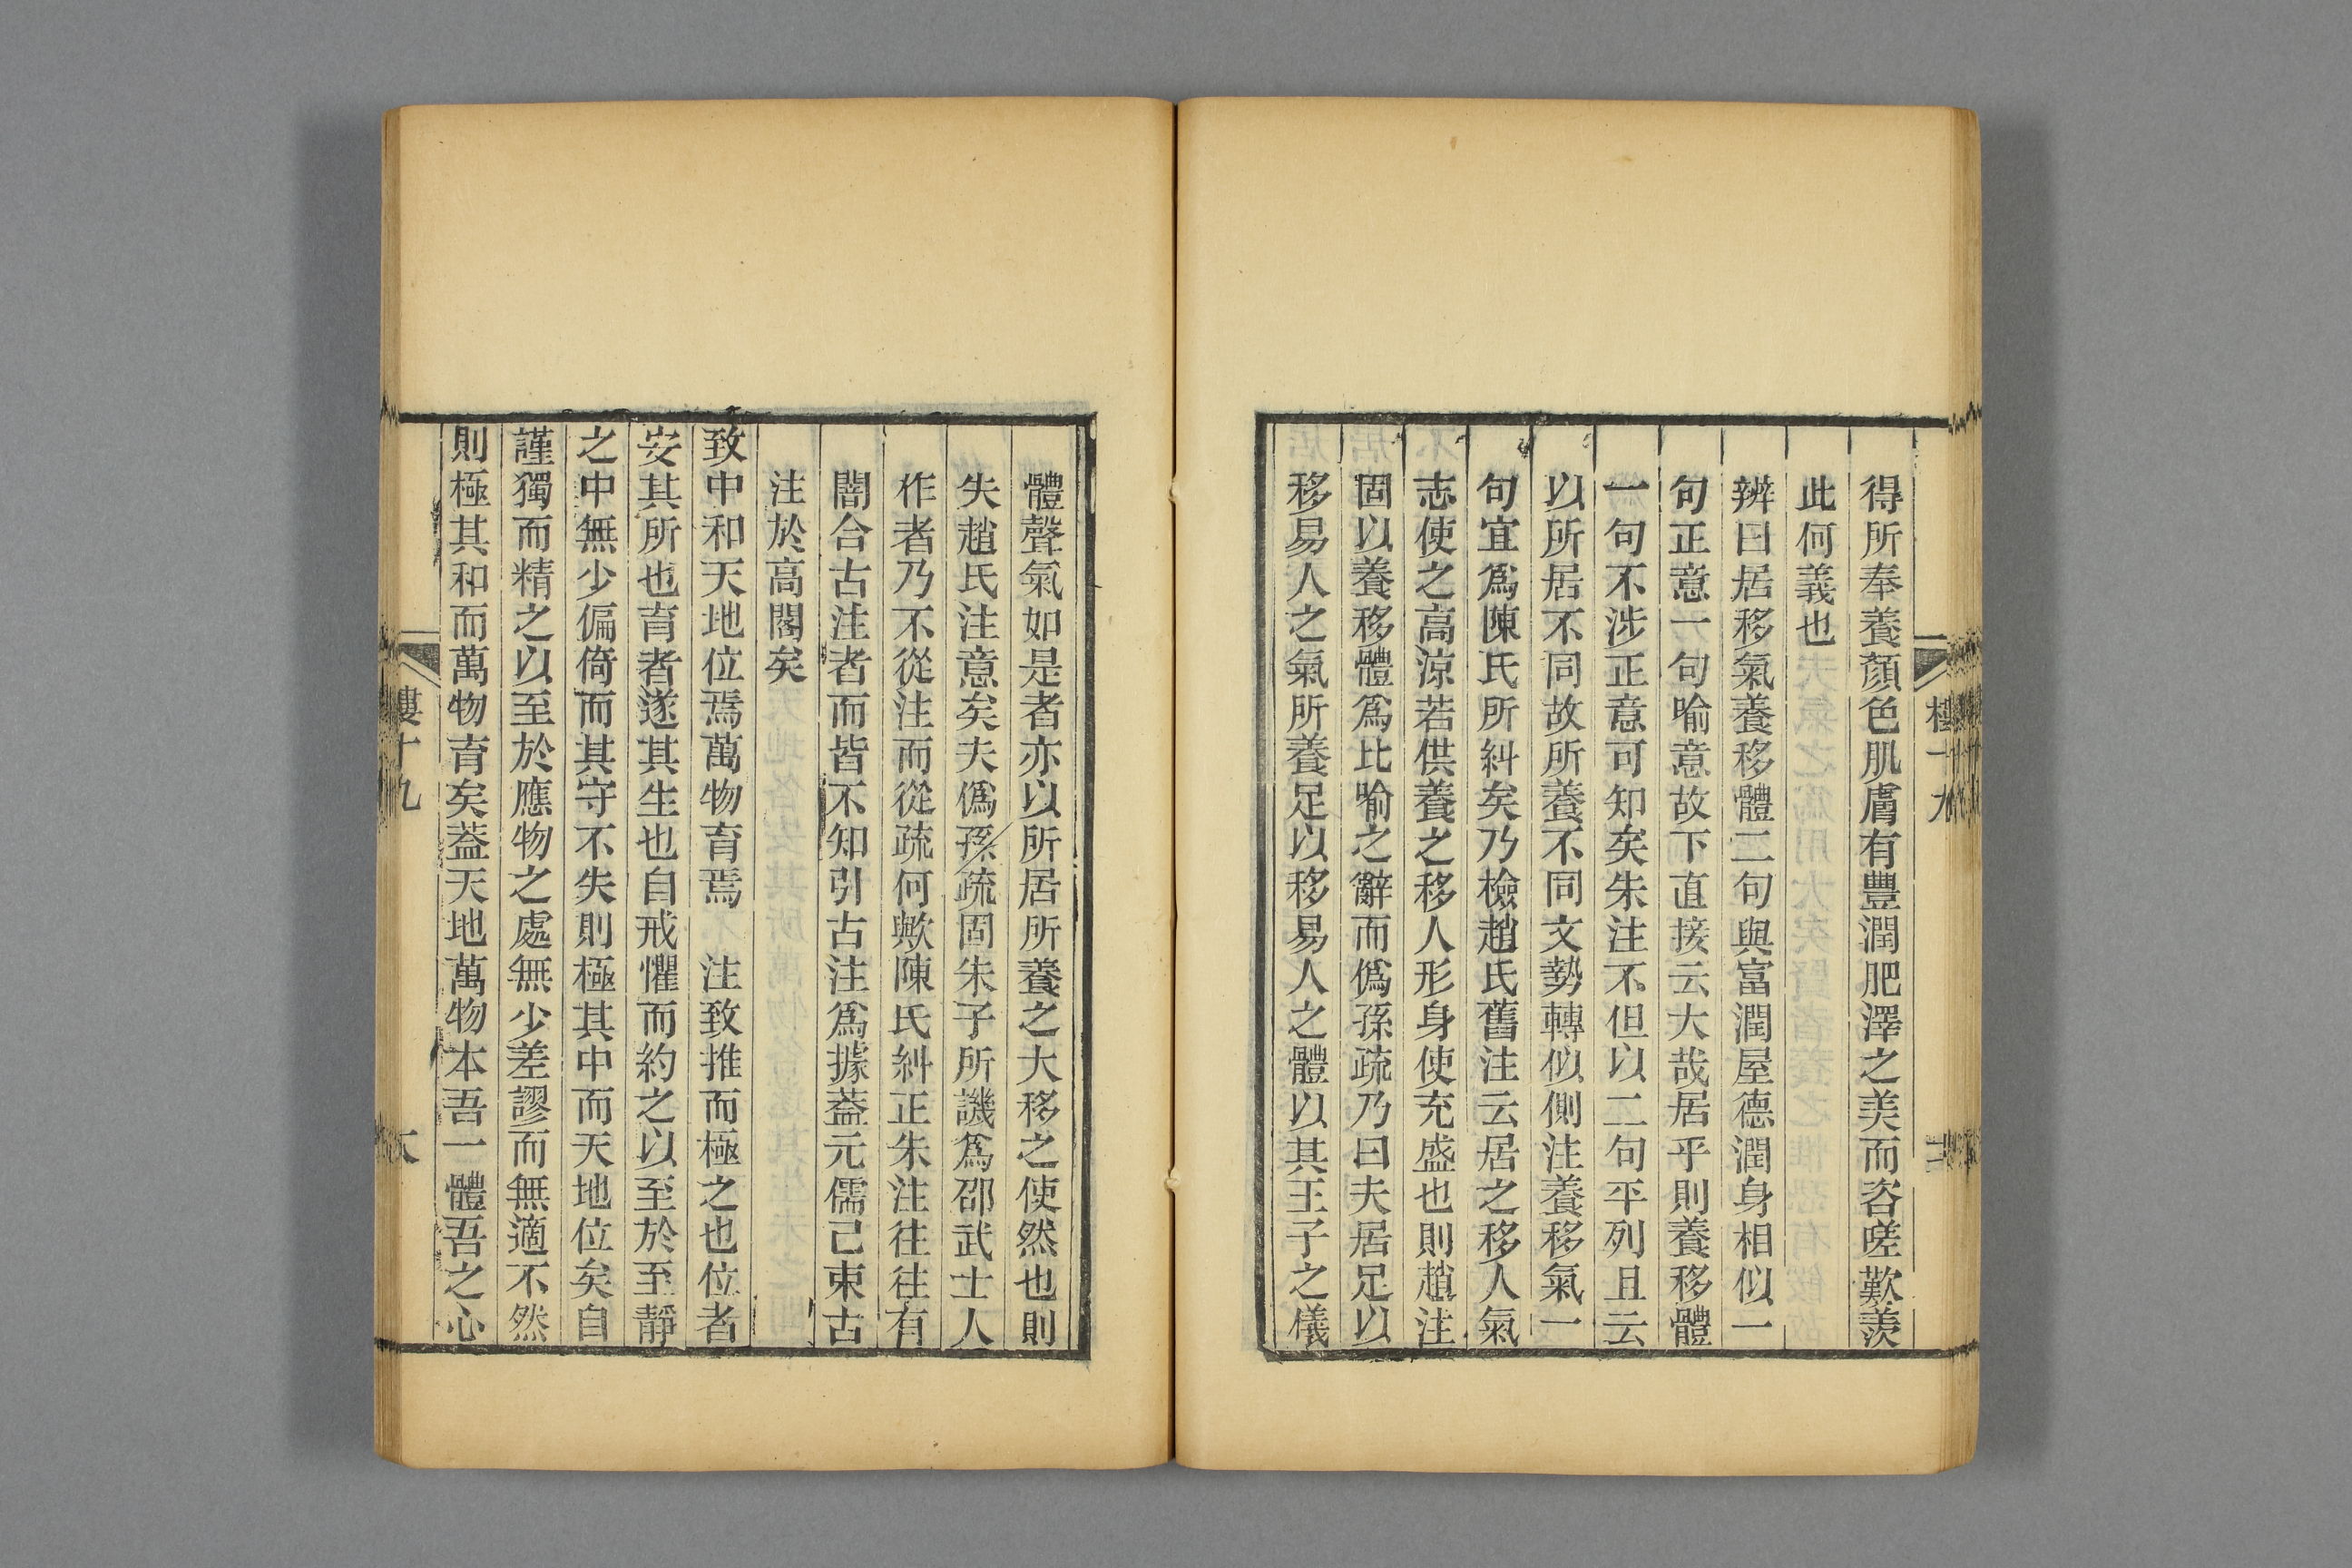 得所奉養顏色肌膚有豐潤肥澤之美而咨嗟歎羨
此何義也
辨曰居移氣養移體二句與富潤屋德潤身相似一
句正意一句喻意故下直接云大哉居乎則養移體
一句不涉正意可知矣朱注不但以二句平列且云
以所居不同故所養不同文勢轉似側注養移氣一
句宜爲陳氏所糾矣乃檢趙氏舊注云居之移人氣
志使之高涼若供養之移人形身使充盛也則趙注
固以養移體爲比喻之辭而僞孫疏乃曰夫居足以
移易人之氣所養足以移易人之體以其王子之儀
體聲氣如是者亦以所居所養之大移之使然也則
失趙氏注意矣夫僞孫疏固朱子所譏爲邵武士人
作者乃不從注而從疏何歟陳氏糾正朱注往往有
闇合古注者而皆不知引古注爲據蓋元儒已束古
注於高閣矣
致中和天地位焉萬物育焉　注致推而極之也位者
安其所也育者遂其生也自戒懼而約之以至於至靜
之中無少偏倚而其守不失則極其中而天地位矣自
謹獨而精之以至於應物之處無少差謬而無適不然
則極其和而萬物育矣蓋天地萬物本吾一體吾之心
樓十九